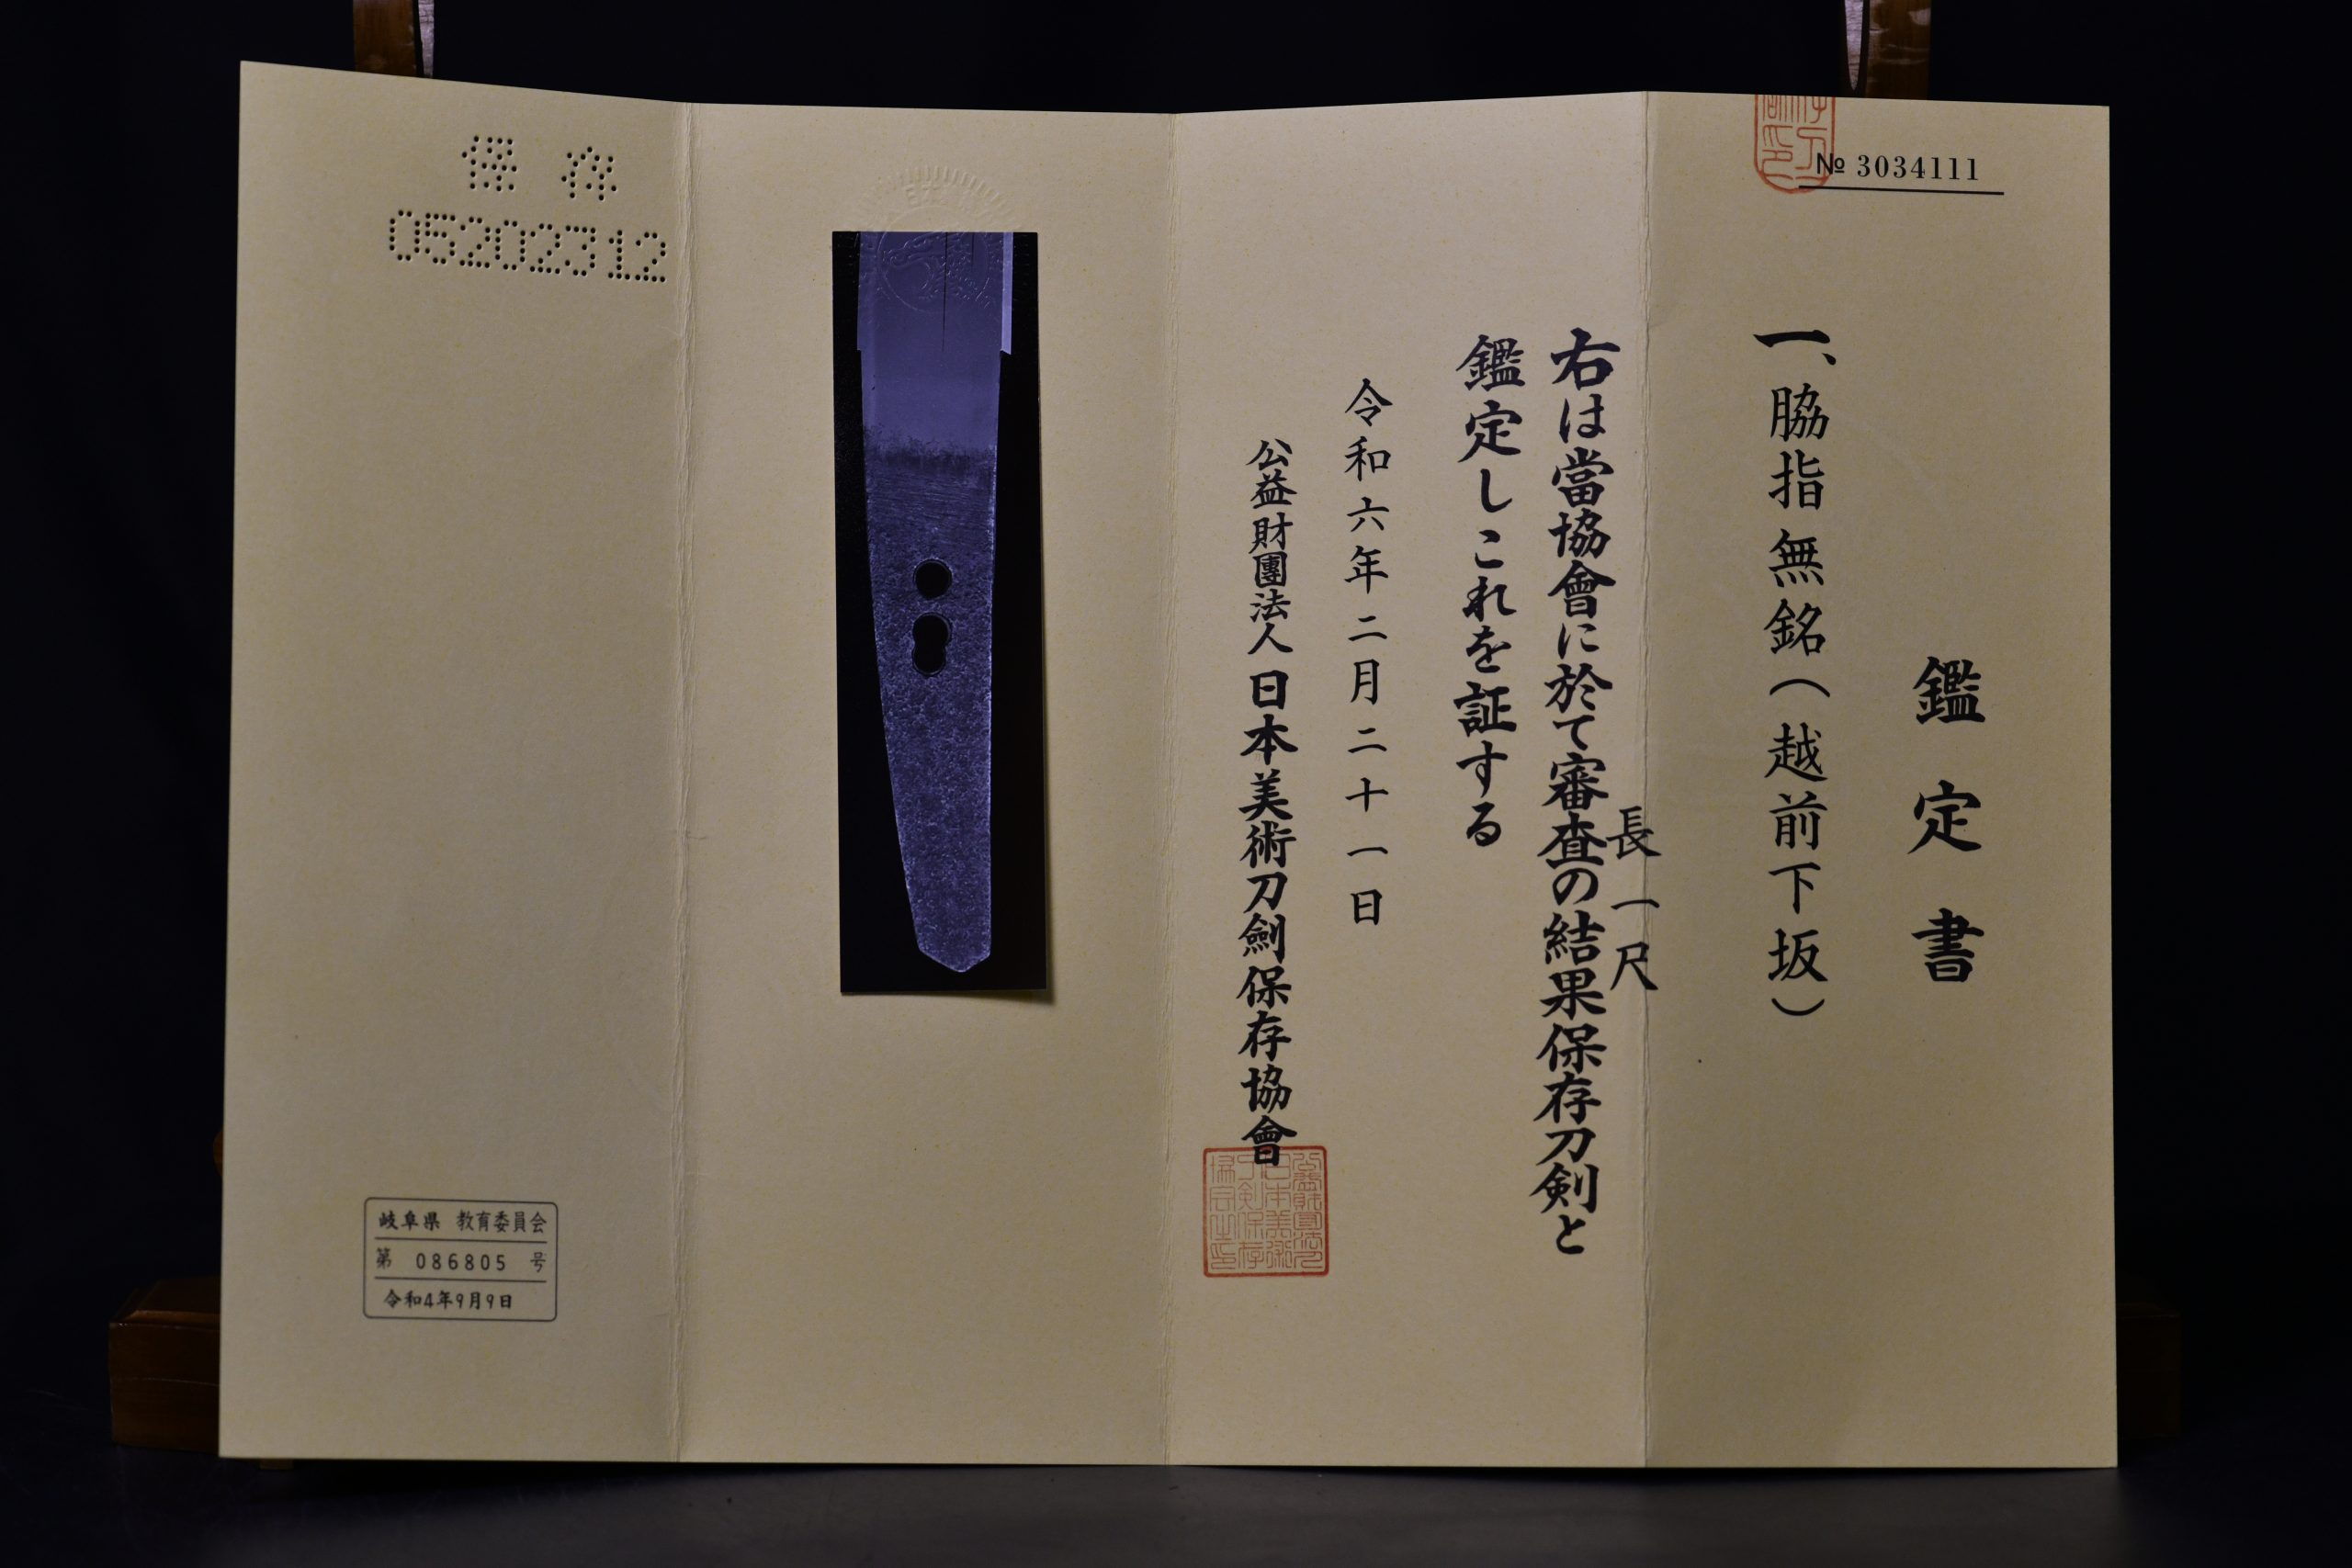 № 3034111
鑑定書
一、脇指無銘（越前下坂）
長一尺
右は當協會に於て審査の結果保存刀剣と
鑑定しこれを証する
令和六年二月二十一日
公益財團法人日本美術刀劍保存協會
保存
05202312
岐阜県 教育委員会
第 086805 号
令和4年9月9日